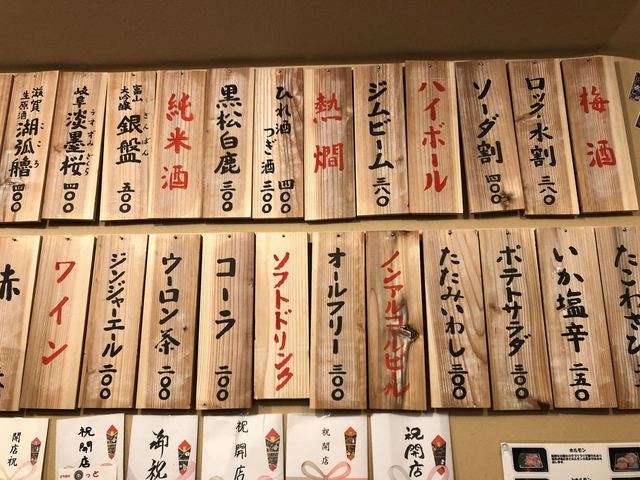 梅酒
ロック・水割 三八〇
ソーダ割 四〇〇
ハイボール
ジムビーム 三八〇
熱燗
ひれ酒 四〇〇
つぎ酒 三〇〇
黒松白鹿 三〇〇
純米酒
富山 大吟醸 銀盤 ぎんばん 五〇〇
岐阜 淡墨桜 うすずみざくら 四〇〇
滋賀 生原酒 湖弧艪 こころ 四〇〇
たこわさび
いか塩辛 二五〇
ポテトサラダ 三〇〇
たたみいわし 三〇〇
ノンアルコールビール
オールフリー 三〇〇
ソフトドリンク
コーラ 二〇〇
ウーロン茶 二〇〇
ジンジャーエール 二〇〇
ワイン
赤
祝開店
祝開店
祝開店
御祝
祝開店
開店祝
ホルモン